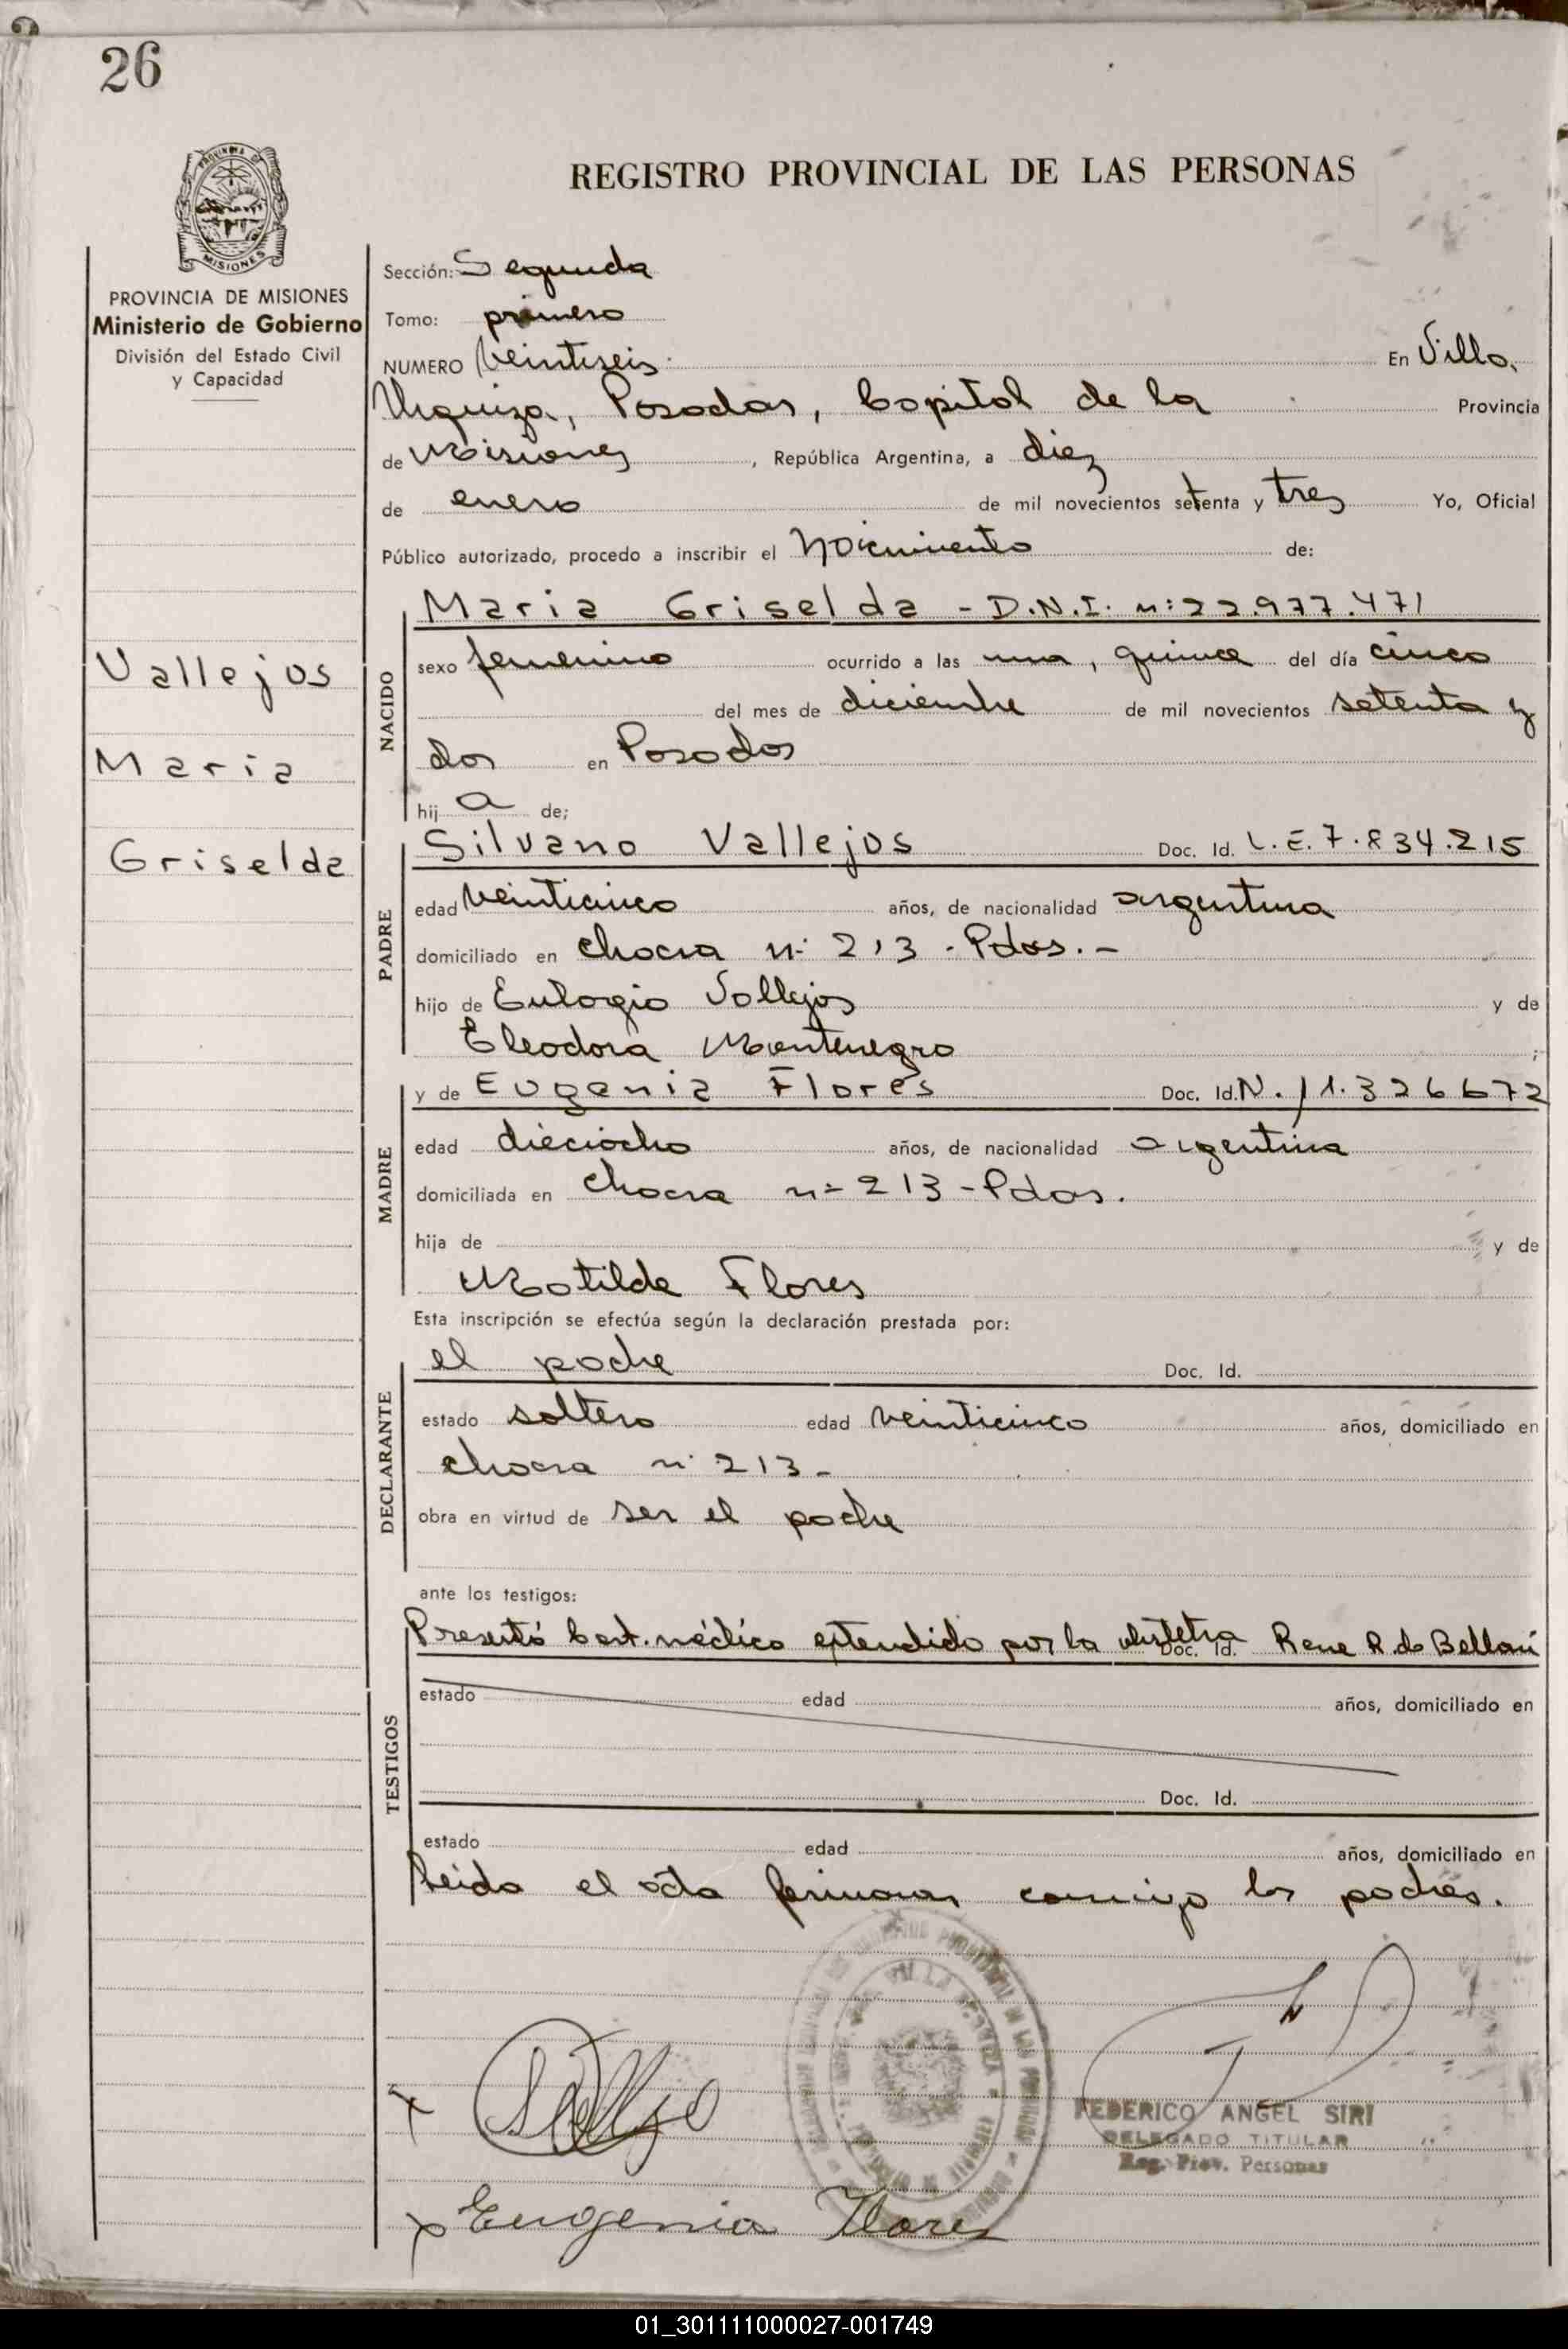 26
PROVINCIA DE MISIONES
Ministerio de Gobierno
División del Estado Civil
y Capacidad
Vallejos
Maria
Griselda
REGISTRO PROVINCIAL DE LAS PERSONAS
Sección: Segunda
Tomo: primero
NUMERO Veintiseis En Villa
Urquiza, Posadas, Capital de la Provincia
de Misiones, República Argentina, a diez
de enero de mil novecientos setenta y tres Yo, Oficial
Público autorizado, procedo a inscribir el Nacimiento de:
NACIDO
Maria Griselda - D.N.I. nº 22.977.471
sexo femenino ocurrido a las una, quince del día cinco
del mes de diciembre de mil novecientos setenta y
dos en Posadas
hija de;
PADRE
Silvano Vallejos Doc. Id. L.E. 7.834.215
edad veinticinco años, de nacionalidad argentina
domiciliado en chacra nº 213 - Pdas. -
hijo de Eulogio Vallejos y de
Eleodora Montenegro ;
MADRE
y de Eugenia Flores Doc. Id. N. 11.326672
edad dieciocho años, de nacionalidad argentina
domiciliada en chacra nº 213 - Pdas.
hija de y de
Matilde Flores
Esta inscripción se efectúa según la declaración prestada por:
DECLARANTE
el padre Doc. Id.
estado soltero edad veinticinco años, domiciliado en
chacra nº 213 -
obra en virtud de ser el padre
ante los testigos:
TESTIGOS
Presentó Cert. médico extendido por la obstetra Doc. Id. Rene R. de
estado edad años, domiciliado en
Doc. Id.
estado edad años, domiciliado en
Leida el acta firman conmigo los padres.
VILLA URQUIZA
FEDERICO ANGEL SIRI
DELEGADO TITULAR
Reg. Prov. Personas
Eugenia Flores
01_301111000027-001749